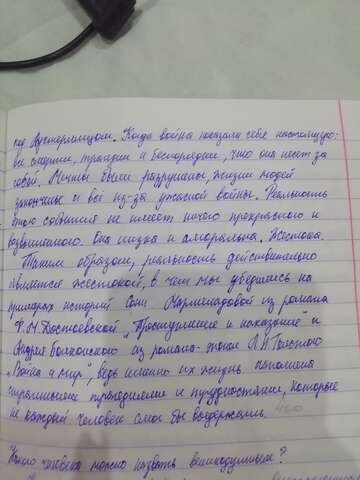 под Аустерлицом. Когда война показала себя настоящую:
все смерти, трагедии и беспорядки, что она несет за
собой. Мечты были разрушены, жизни людей
закончены и всё из-за ужасной войны. Реальность
этого события не имеет ничего прекрасного и
возвышенного. Она низка и аморальна. Жестока.
Таким образом, реальность действительно
является жестокой, в чем мы убедились на
примерах историй Сони Мармеладовой из романа
Ф.М.Достоевской "Преступление и наказание" и
Андрея Болконского из романа-эпопеи Л.Н.Толстого
"Война и мир", ведь именно их жизнь наполнена
страшными трагедиями и трудностями, которые
не каждый человек смог бы выдержать.
Какого человека можно назвать великодушным?